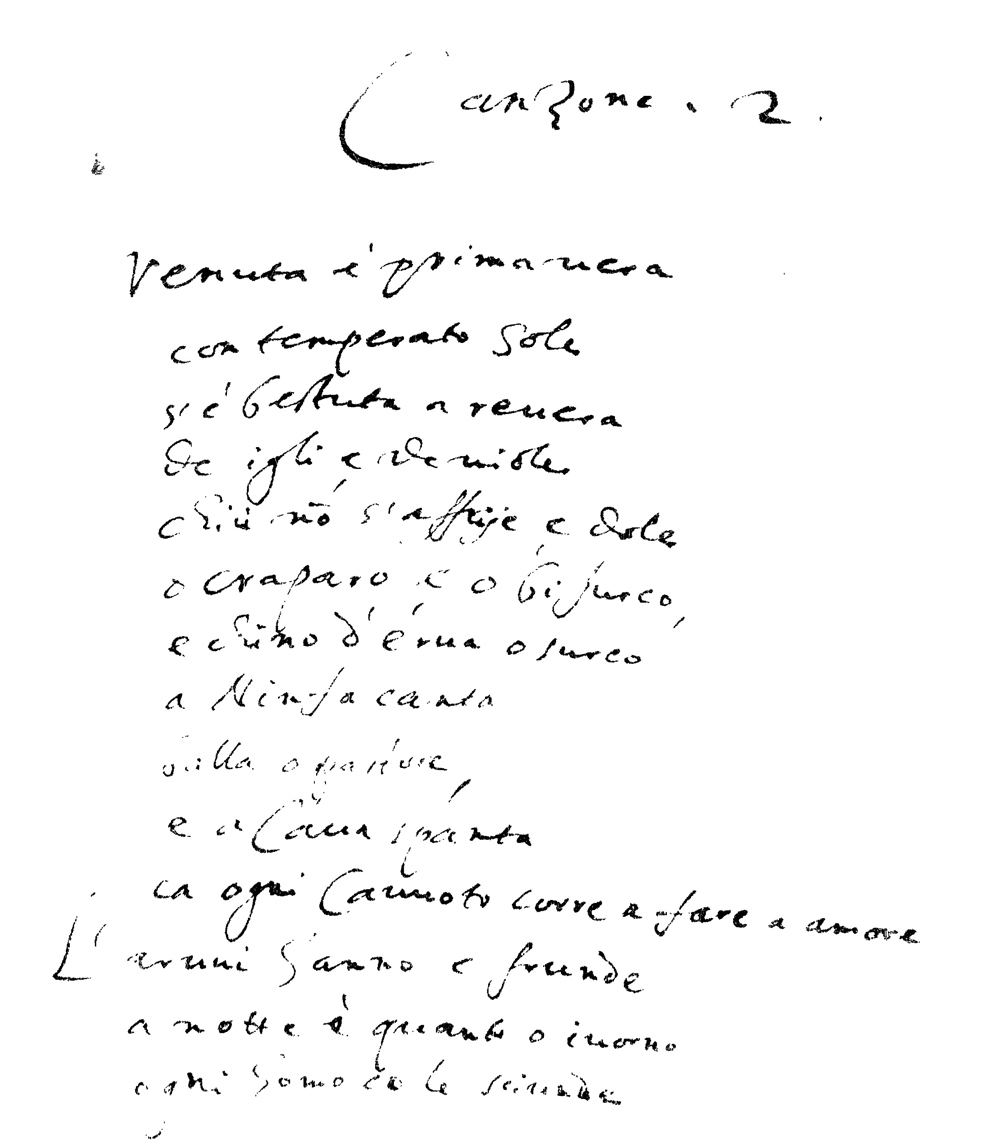 Canzone. 2.
Venuta è primauera
con temperato Sole
s'è bestuta a reuera
de igli e de uiole
chiù nõ s'affrije e dole
o craparo e o bifurco,
e chino d'érua o surco
a Ninfa canta
balla o pastore,
e a Caura spanta
ca ogni Cauuoto corre a fare a amore
L'aruni hanno e frunde
a notte è quanto o iuorno
ogni homo co le